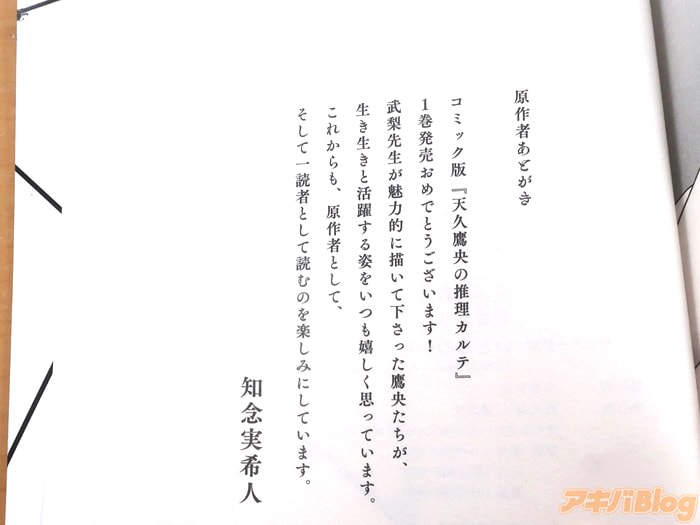 原作者あとがき
コミック版『天久鷹央の推理カルテ』
1巻発売おめでとうございます！
武梨先生が魅力的に描いて下さった鷹央たちが、
生き生きと活躍する姿をいつも嬉しく思っています。
これからも、原作者として、
そして一読者として読むのを楽しみにしています。
知念実希人
アキバBlog